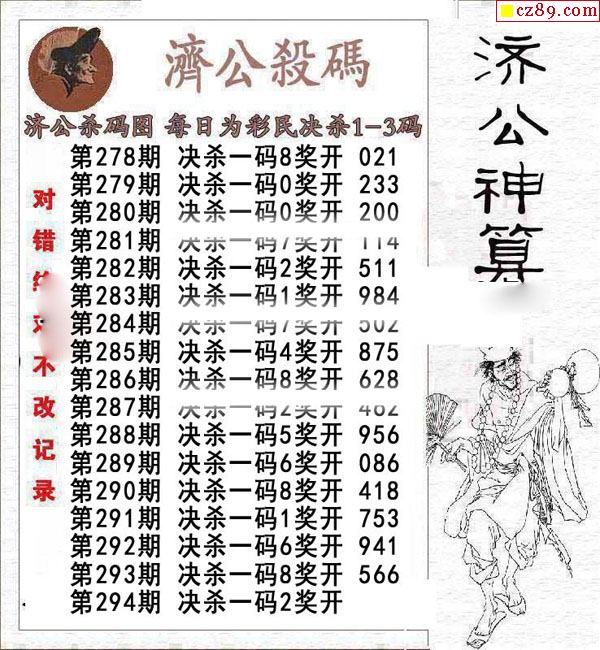 cz89.com
濟公殺碼
济公杀码图 每日为彩民决杀1-3码
第278期 决杀一码8奖开 021
第279期 决杀一码0奖开 233
第280期 决杀一码0奖开 200
第281期 决杀一码7奖开 114
第282期 决杀一码2奖开 511
第283期 决杀一码1奖开 984
第284期 决杀一码7奖开 502
第285期 决杀一码4奖开 875
第286期 决杀一码8奖开 628
第287期 决杀一码2奖开 462
第288期 决杀一码5奖开 956
第289期 决杀一码6奖开 086
第290期 决杀一码8奖开 418
第291期 决杀一码1奖开 753
第292期 决杀一码6奖开 941
第293期 决杀一码8奖开 566
第294期 决杀一码2奖开
对错不改记录
济公神算